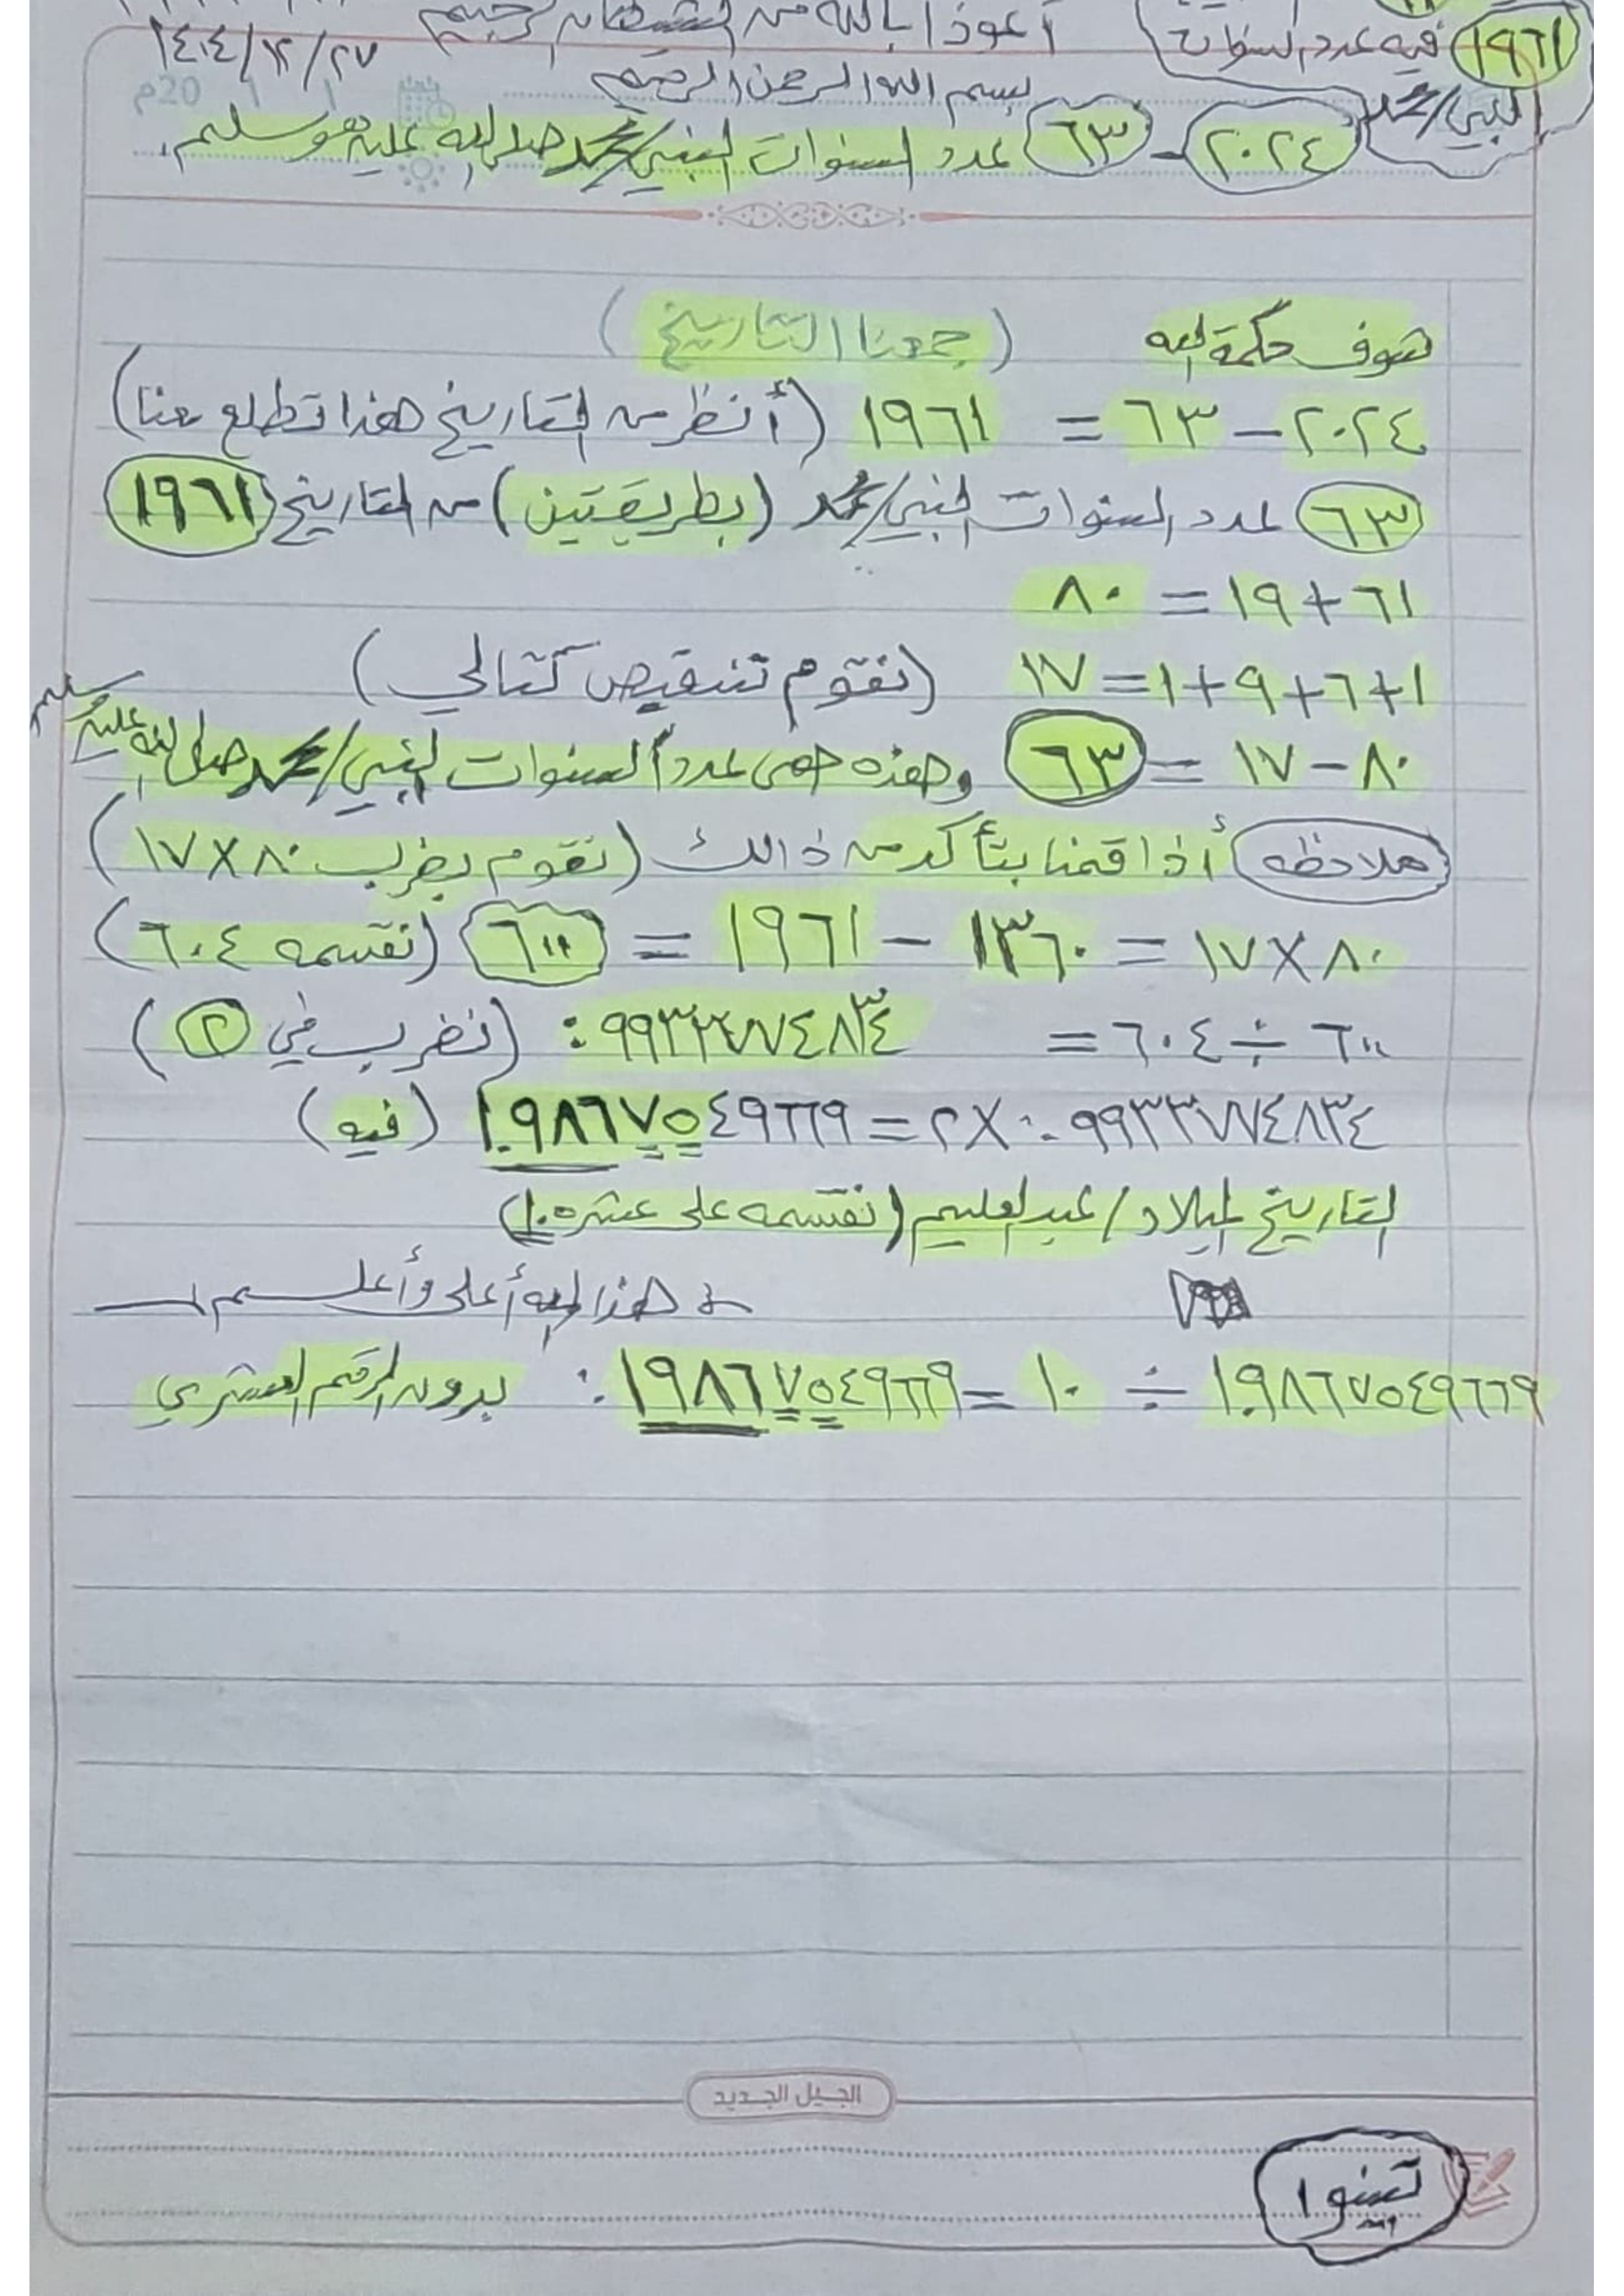 ١٩٦١ فيه عدد السنوات أعوذ بالله من الشيطان الرجيم ١٤٠٤/١٢/٢٧
النبي/محمد بسم الله الرحمن الرحيم 20م
٢٠٢٤ - ٦٣ عدد السنوات النبي/محمد صلى الله عليه وسلم.
شوف حكمة الله (جمعنا التاريخ)
٢٠٢٤ - ٦٣ = ١٩٦١ (أنظر من التاريخ هذا تطلع معنا)
٦٣ عدد السنوات النبي/محمد (بطريقتين) من التاريخ ١٩٦١
٦١+١٩ = ٨٠
١+٦+٩+١=١٧ (نقوم تنقيص كتالي)
٨٠ - ١٧ = ٦٣ وهذه هي عدد السنوات النبي/محمد صلى الله عليه وسلم
ملاحظه أذا قمنا بتأكد من ذالك (نقوم بضرب ٨٠×١٧)
٨٠×١٧ = ١٣٦٠ - ١٩٦١ = ٦٠١ (نقسمه ٦٠٤)
٦٠١ ÷ ٦٠٤ = ٩٩٣٣٧٧٤٨٣٤. : (نضرب في ٢)
٠.٩٩٣٣٧٧٤٨٣٤ ×٢ = ١.٩٨٦٧٥٤٩٦٦٩ (فيه)
التاريخ الميلاد/عبدالعليم (نقسمه على عشره ١٠)
هذا الله أعلى وأعلم
١.٩٨٦٧٥٤٩٦٦٩ ÷ ١٠ = ١٩٨٦٧٥٤٩٦٦٩.: بدون الرقم العشري
الجيل الجديد